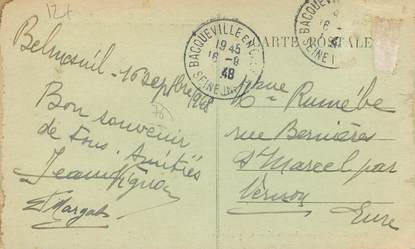 12f
Belmesnil, 16 septbre 1948
Bon souvenir
de tous. Amitiés
Jean
Margot
BACQUEVILLE EN C
19 45
16 - 9
48
SEINE
BACQUEVILLE
CARTE POSTALE
Rumébe
rue Bernières
St Marcel par
Vernon
Eure